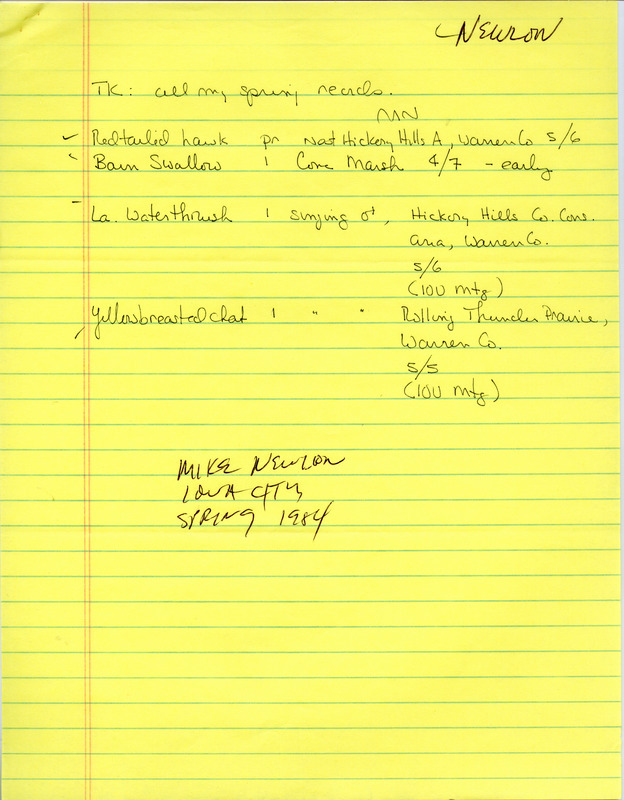 NEWLON
TK: all my spring records.
MN
Redtailed hawk pr nest Hickory Hills A, Warren Co 5/6
Barn Swallow 1 Cone Marsh 4/7 - early
La. Waterthrush 1 singing ♂, Hickory Hills Co. Cons.
area, Warren Co.
5/6
(IOU mtg)
Yellowbreasted chat 1 " " Rolling Thunder Prairie,
Warren Co.
5/5
(IOU mtg)
MIKE NEWLON
IOWA CITY
SPRING 1984